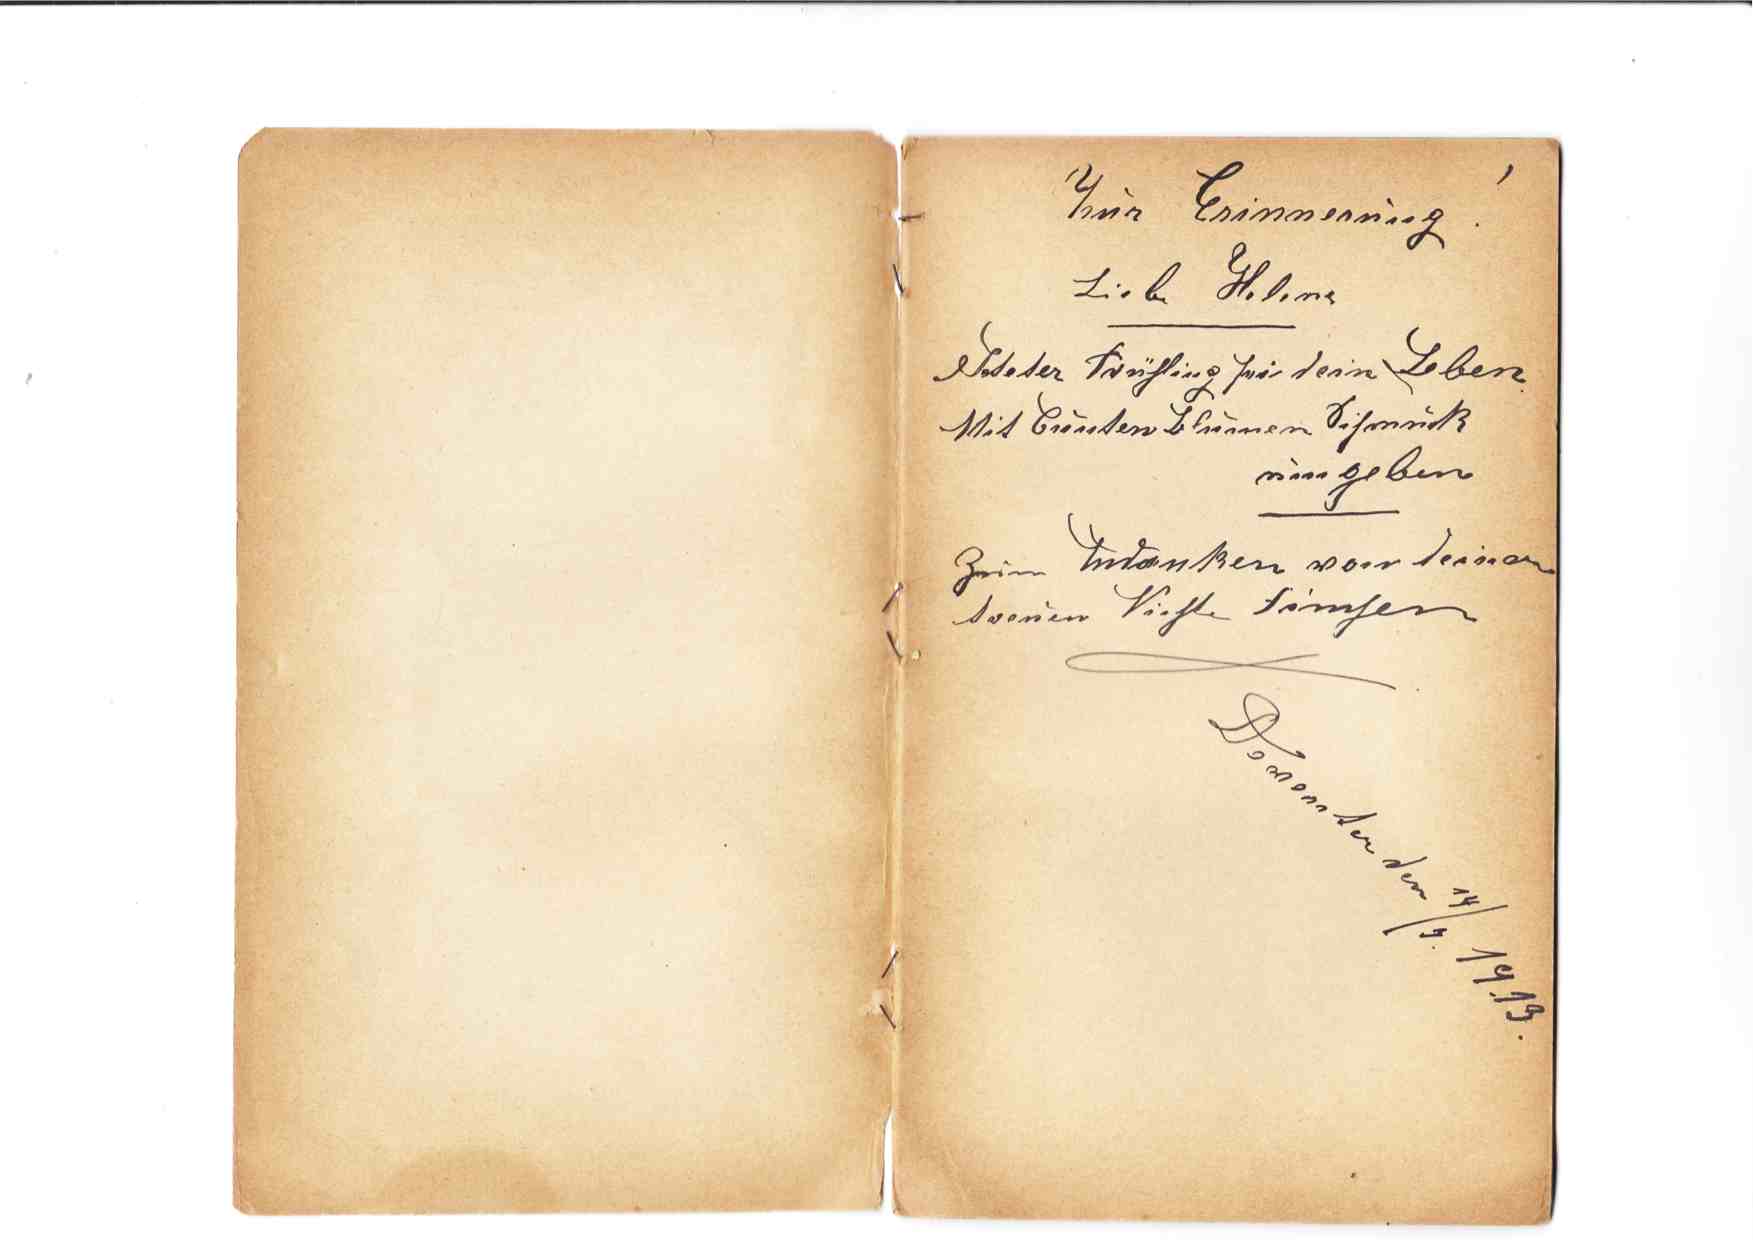 Zur Erinnerung!
Liebe Helene
Steter Frühling sei dein Leben
Mit bunten Blumen Schmuck
umgeben
Zum Andenken von deiner
treuen Nichte
den 14/9. 1913.